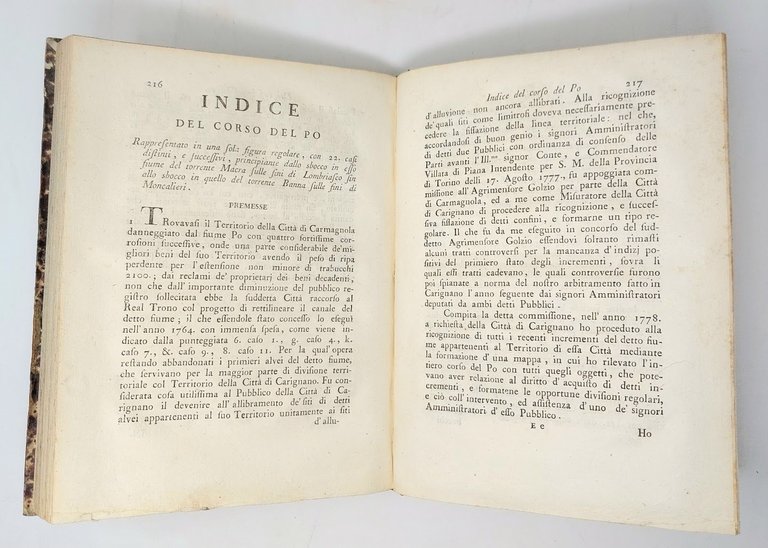 216
INDICE
DEL CORSO DEL PO
Rappresentato in una sola figura regolare, con 22. casi
distinti, e successivi, principiante dallo sbocco in esso
fiume del torrente Macra sulle fini di Lombriasco sin
allo sbocco in quello del torrente Banna sulle fini di
Moncalieri.
PREMESSE
1 TRovavasi il Territorio della Città di Carmagnola
danneggiato dal fiume Po con quattro fortissime cor-
rosioni successive, onde una parte considerabile de'mi-
gliori beni del suo Territorio avendo il peso di ripa
perdente per l'estensione non minore di trabucchi
2100.; dai reclami de' proprietarj dei beni decadenti,
non che dall'importante diminuzione del pubblico re-
gistro sollecitata ebbe la suddetta Città raccorso al
Real Trono col progetto di rettilineare il canale del
detto fiume; il che essendole stato concesso lo eseguì
nell'anno 1764. con immensa spesa, come viene in-
dicato dalla punteggiata 6. caso 1., g. caso 4., k.
caso 7., &. caso 9., 8. caso 11. Per la qual'opera
restando abbandonati i primieri alvei del detto fiume,
che servivano per la maggior parte di divisione terri-
toriale col Territorio della Città di Carignano. Fu con-
siderata cosa utilissima al Pubblico della Città di Ca-
rignano il devenire all'allibramento de'siti di detti
alvei appartenenti al suo Territorio unitamente ai siti
d'allu-
Indice del corso del Po 217
d'alluvione non ancora allibrati. Alla ricognizione
de'quali siti come limitrofi doveva necessariamente pre-
cedere la fissazione della linea territoriale: nel che,
accordandosi di buon genio i signori Amministratori
di detti due Pubblici con ordinanza di consenso delle
Parti avanti l'Ill.mo signor Conte, e Commendatore
Villata di Piana Intendente per S. M. della Provincia
di Torino delli 17. Agosto 1777., fu appoggiata com-
missione all'Agrimensore Golzio per parte della Città
di Carmagnola, ed a me come Misuratore della Città
di Carignano di procedere alla ricognizione, e succes-
siva fissazione di detti confini, e formarne un tipo re-
golare. Il che fu da me eseguito in concorso del sud-
detto Agrimensore Golzio essendovi soltanto rimasti
alcuni tratti controversi per la mancanza d'indizj po-
sitivi del primiero stato degli incrementi, sovra li
quali essi tratti cadevano, le quali controversie furono
poi spianate a norma del nostro arbitramento fatto in
Carignano l'anno seguente dai signori Amministratori
deputati da ambi detti Pubblici.
Compita la detta commissione, nell'anno 1778.
a richiesta della Città di Carignano ho proceduto alla
ricognizione di tutti i recenti incrementi del detto fiu-
me appartenenti al Territorio di essa Città mediante
la formazione d'una mappa, in cui ho rilevato l'in-
tiero corso del Po con tutti quegli oggetti, che pote-
vano aver relazione al diritto d'acquisto di detti in-
crementi, e formatene le opportune divisioni regolari,
e ciò coll'intervento, ed assistenza d'uno de' signori
Amministratori d'esso Pubblico.
E e
Ho